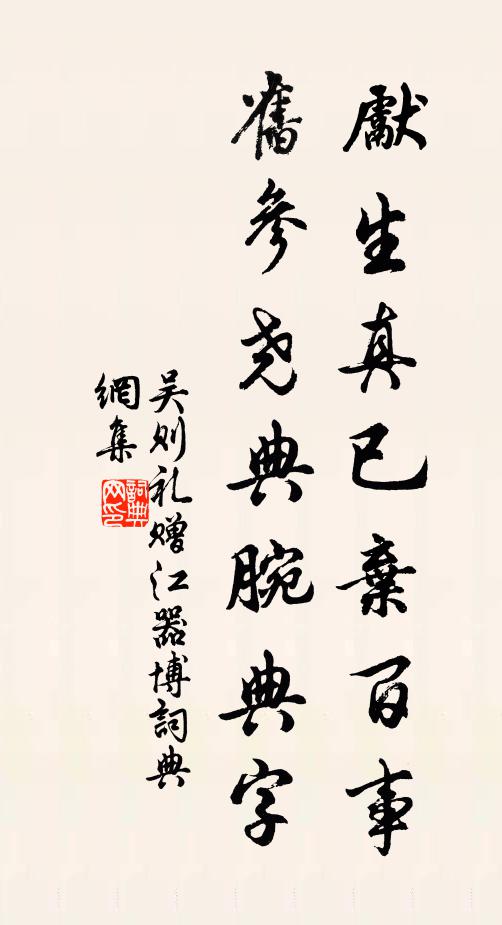 獻生真已棄百事
舊參尧典腕典字
吴则礼赠江器博詞典
網集
詞典網印